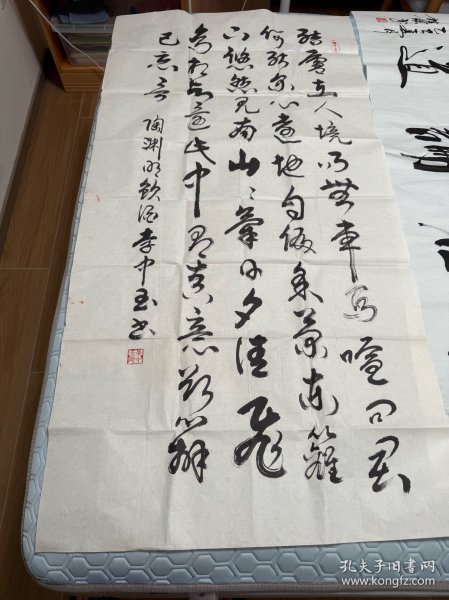 結廬在人境而無車馬喧問君
何能爾心遠地自偏采菊東籬
下悠然見南山〻氣日夕佳飛
鳥相与還此中有真意欲辨
已忘言 陶渊明飲酒 李中玉书
道
孔夫子旧书网
www.kongfz.com